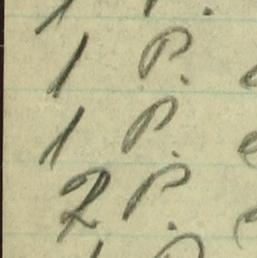 1 P.
1 P.
2 P.